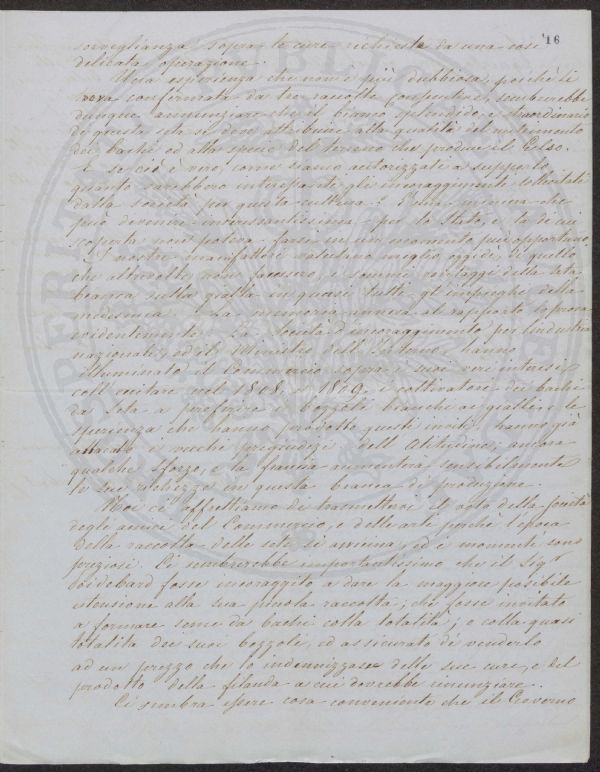 16
sorveglianza sopra le cure richieste da una così
delicata operazione.
Una esperienza che non è più dubbiosa, poichè si
trova confermata da tre raccolte consecutive, sembrerebbe
dunque annunziare che il bianco splendido, e straordinario
di questa seta si deve attribuire alla qualità del nutrimento
dei bachi ed alla specie del terreno che produce il Gelso.
E se ciò è vero, come siamo autorizzati a supporlo
quanto sarebbero interessanti gl'incoraggimenti sollecitati
dalla società per questa cultura? È una miniera che
può divenire interessantissima per lo Stato, e la di cui
scoperta non poteva farsi in un momento più opportuno,
I nostri manifattori valutano meglio oggidì, di quello
che altrevolte non facessero, i sommi vantaggi della seta
bianca sulla gialla in quasi tutti gl'impieghi della
medesima. La memoria annessa al rapporto lo prova
evidentemente. La Società d'incoraggimento per l'industria
nazionale, ed il Ministro dell'Interno, hanno
illuminato il Commercio sopra i suoi veri interessi
coll'eccitare nel 1808, e 1809 i coltivatori dei bachi
da seta a preferire i bozzoli bianchi ai gialli, le
sperienze che hanno prodotto questi inviti, hanno già
attaccato i vecchi pregiudizi dell'abitudine; ancora
qualche sforzo, e la francia aumenterà sensibilmente
le sue ricchezze in questa branca di produzione.
Noi ci affrettiamo di trasmettere il voto della società
degli amici del Commercio, e delle arti perchè l'epoca
della raccolta delle sete si avvicina, ed i momenti sono
preziosi. Ci sembrerebbe importantissimo che il Sigr
Poidebard fosse incoraggito a dare la maggiore possibile
estensione alla sua piccola raccolta; che fosse invitato
a formare seme da bachi colla totalità, o colla quasi
totalità dei suoi bozzoli, ed assicurato di venderlo
ad un prezzo che lo indennizzasse delle sue cure, e del
prodotto della filanda a cui dovrebbe rinunziare.
Ci sembra essere cosa conveniente che il Governo